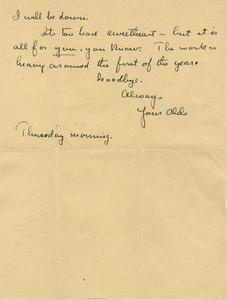 I will be down.
Its too bad sweetheart - but it is
all for you, you know. The work is
heavy around the first of the year.
Goodbye.
Always
Your Aldo
Thursday morning.